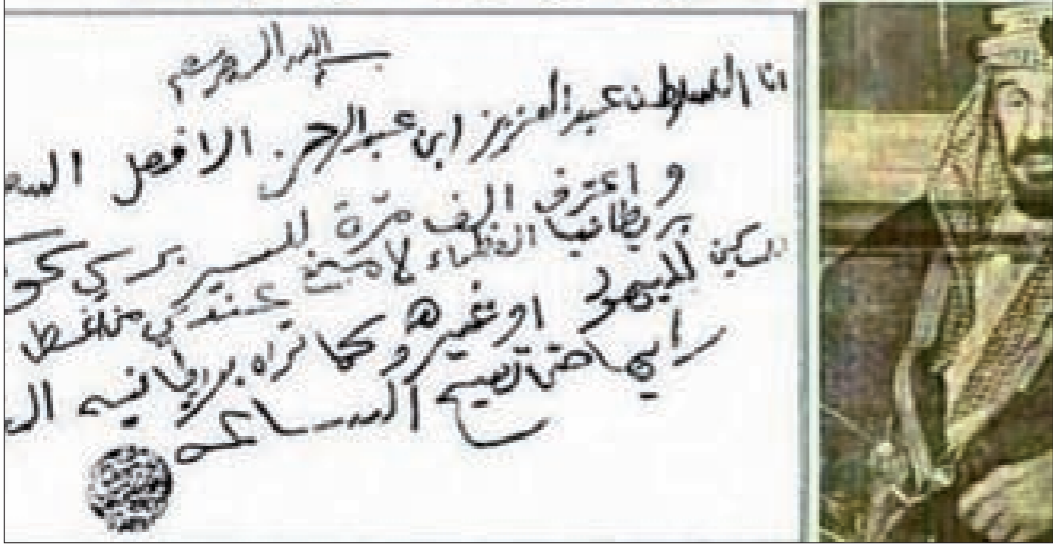 بسم الله الرحمن الرحيم
انا السلطان عبد العزيز ابن عبد الرحمن الافصل السع
و اعترف الف مرة للسير برسي كو
بريطانيا العظماء لا مانع عندي من اعط
المسكين لليهود او غيره وكما تراه بريطانيه ال
رايها حتى تصيح الساعه